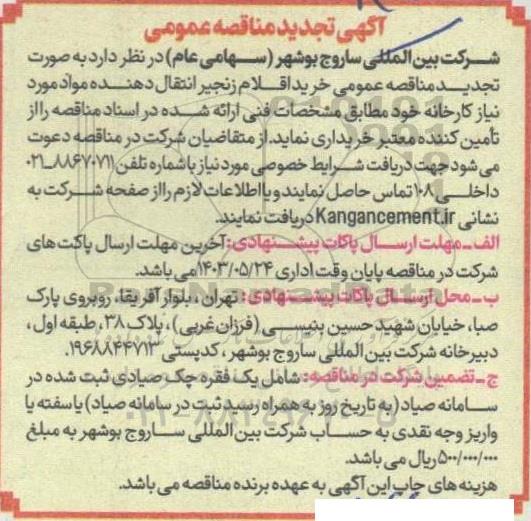 آگهی تجدید مناقصه عمومی
شرکت بین المللی ساروج بوشهر (سهامی عام) در نظر دارد به صورت
تجدید مناقصه عمومی خرید اقلام زنجیر انتقال دهنده مواد مورد
نیاز کارخانه خود مطابق مشخصات فنی ارائه شده در اسناد مناقصه را از
تأمین کننده معتبر خریداری نماید. از متقاضیان شرکت در مناقصه دعوت
می شود جهت دریافت شرایط خصوصی مورد نیاز با شماره تلفن ۸۸۶۷۰۷۱۱-۰۲۱
داخلی ۱۰۸ تماس حاصل نمایند و یا اطلاعات لازم را از صفحه شرکت به
نشانی Kangancement.ir دریافت نمایند.
الف-مهلت ارسال پاکات پیشنهادی: آخرین مهلت ارسال پاکت های
شرکت در مناقصه پایان وقت اداری ۱۴۰۳/۰۵/۲۴ می باشد.
ب-محل ارسال پاکات پیشنهادی: تهران، بلوار آفریقا، روبروی پارک
صبا، خیابان شهید حسین بنیسی (فرزان غربی)، پلاک ۳۸، طبقه اول،
دبیرخانه شرکت بین المللی ساروج بوشهر، کدپستی ۱۹۶۸۸۴۴۷۱۳.
ج-تضمین شرکت در مناقصه: شامل یک فقره چک صیادی ثبت شده در
سامانه صیاد (به تاریخ روز به همراه رسید ثبت در سامانه صیاد) یا سفته یا
واریز وجه نقدی به حساب شرکت بین المللی ساروج بوشهر به مبلغ
۵۰۰/۰۰۰/۰۰۰ ریال می باشد.
هزینه های چاپ این آگهی به عهده برنده مناقصه می باشد.